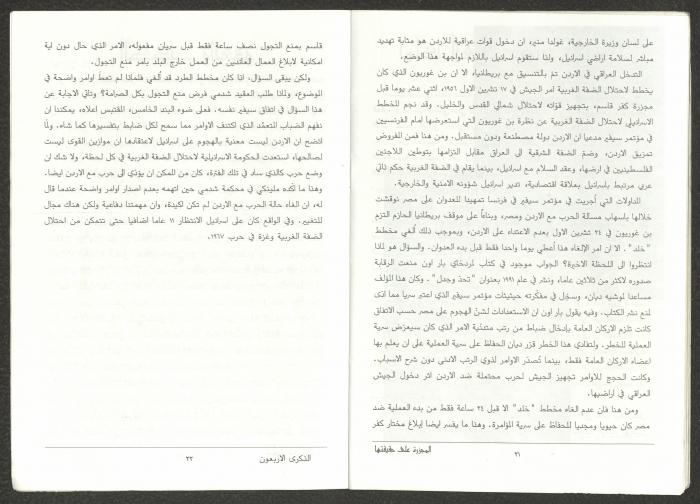 على لسان وزيرة الخارجية، غولدا مئير، ان دخول قوات عراقية للاردن هو مثابة تهديد
مباشر لسلامة اراضي اسرائيل، ولذا ستقوم اسرائيل باللازم لمواجهة هذا الوضع.
التدخل العراقي في الاردن تمّ بالتنسيق مع بريطانيا، الا ان بن غوريون الذي كان
يخطط لاحتلال الضفة الغربية امر الجيش في ١٧ تشرين الاول ١٩٥٦، اثني عشر يوما قبل
مجزرة كفر قاسم، بتجهيز قواته لاحتلال شمالي القدس والخليل. وقد نجم المخطط
الاسرائيلي لاحتلال الضفة الغربية عن نظرة بن غوريون التي استعرضها امام الفرنسيين
في مؤتمر سيفير مدعيا ان الاردن دولة مصطنعة ودون مستقبل. ومن هنا فمن المفروض
تمزيق الاردن، وضمّ الضفة الشرقية الى العراق مقابل التزامها بتوطين اللاجئين
الفلسطينيين في ارضها، وعقد السلام مع اسرائيل، بينما يقام في الضفة الغربية حكم ذاتي
عربي مرتبط باسرائيل بعلاقة اقتصادية، تدير اسرائيل شؤونه الامنية والخارجية.
المداولات التي أُجريت في مؤتمر سيفير في فرنسا تمهيدا للعدوان على مصر نوقشت
خلالها باسهاب مسالة الحرب مع الاردن ومصر، وبناءً على موقف بريطانيا الحازم التزم
بن غوريون في ٢٤ تشرين الاول بعدم الاعتداء على الاردن، وبموجب ذلك أُلغي مخطط
"خلد". الا ان امر الإلغاء هذا أُعطي يوما واحدا فقط قبل بدء العدوان. والسؤال هو لماذا
انتظروا الى اللحظة الاخيرة؟ الجواب موجود في كتاب لمردخاي بار اون منعت الرقابة
صدوره لاكثر من ثلاثين عاما، ونشر في عام ١٩٩١ بعنوان "تحدّ وجدل". وكان هذا المؤلف
مساعدا لموشيه ديان، وسجّل في مفكّرته حيثيات مؤتمر سيفير الذي اعتبر سريا مما ادى
لمنع نشر الكتاب. وفيه يقول بار اون ان الاستعدادات لشنّ الهجوم على مصر حسب الاتفاق
كانت تلزم الاركان العامة بإدخال ضباط من رتب متدنّية الامر الذي كان سيعرّض سرية
العملية للخطر. ولتفادي هذا الخطر قرّر ديان الحفاظ على سرية العملية على ان يعلم بها
اعضاء الاركان العامة فقط، بينما تُصدَر الاوامر لذوي الرتب الادنى دون شرح الاسباب.
وكانت الحجج للاوامر تجهيز الجيش لحرب محتملة ضد الاردن اثر دخول الجيش
العراقي في اراضيها.
ومن هنا فان عدم الغاء مخطط "خلد" الا قبل ٢٤ ساعة فقط من بدء العملية ضد
مصر كان حيويا ومجديا للحفاظ على سرية المؤامرة. وهذا ما يفسر ايضا إبلاغ مختار كفر
المجزرة على حقيقتها
٢١
قاسم بمنع التجول نصف ساعة فقط قبل سريان مفعوله، الامر الذي حال دون اية
امكانية لإبلاغ العمال العائدين من العمل خارج البلد بامر منع التجول.
ولكن يبقى السؤال، اذا كان مخطط الطرد قد أُلغي فلماذا لم تعط اوامر واضحة في
الموضوع، ولماذا طلب العقيد شدمي فرض منع التجول بكل الصرامة؟ وتاتي الاجابة عن
هذا السؤال في اتفاق سيفير نفسه. فعلى ضوء البند الخامس، المقتبس اعلاه، يمكننا ان
نفهم الضباب المتعمّد الذي اكتنف الاوامر مما سمح لكل ضابط بتفسيرها كما شاء. ولمّا
اتضح ان الاردن ليست معنية بالهجوم على اسرائيل لاعتقادها ان موازين القوى ليست
لصالحها، استعدت الحكومة الاسرائيلية لاحتلال الضفة الغربية في كل لحظة، ولا شك ان
وضع حرب كالذي ساد في تلك الفترة، كان من الممكن ان يؤدي الى حرب مع الاردن ايضا.
وهذا ما اكّده ملينكي في محكمة شدمي حين اتهمه بعدم اصدار اوامر واضحة عندما قال
له، ان الغاء حالة الحرب مع الاردن لم تكن اكيدة، وان مهمتنا دفاعية ولكن هناك مجال
للتغيير. وفي الواقع كان على اسرائيل الانتظار ١١ عاما اضافيا حتى تتمكن من احتلال
الضفة الغربية وغزة في حرب ١٩٦٧.
الذكرى الاربعون
٢٢